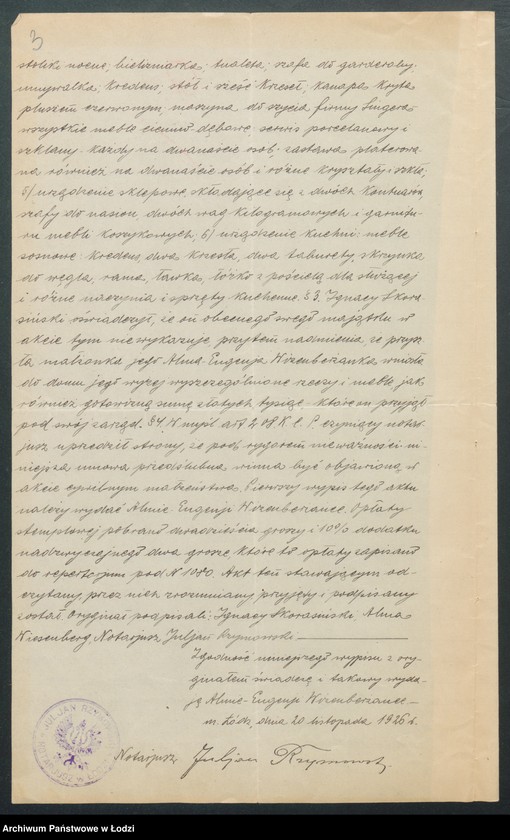 3
stoliki nocne, bieliźniarka, tualeta, szafa do garderoby,
umywalka, kredens, stół i sześć krzeseł, kanapa kryta
pluszem czerwonym, maszyna do szycia firmy Singera
wszystkie meble ciemno dębowe, serwis porcelanowy i
szklany każdy na dwanaście osób, zastawa platerowa-
na również na dwanaście osób i różne kryształy i szkło;
5/ urządzenie sklepowe, składające się z dwóch kontuarów,
szafy do nasion, dwóch wag kilogramowych i garnitu-
ru mebli koszykowych, 6/ urządzenie kuchni: meble
sosnowe: kredens, dwa krzesła, dwa taburety, skrzynka
do węgla, rama, ławka, łóżko z pościelą dla służącej
i różne naczynia i sprzęty kuchenne. § 3. Ignacy Skora-
siński oświadczył, że on obecnego swego majątku w
akcie tym nie wykazuje, przytem nadmienia, że przysz-
ła małżonka jego Alma-Eugenja Wizenberżanka wniosła
do domu jego wyżej wyszczególnione rzeczy i meble jak
również gotowizną sumę złotych tysiąc, które on przyjął
pod swój zarząd. § 4. W myśl art. 208 K. C. P. czyniący notar-
jusz uprzedził strony, że pod rygorem nieważności ni-
niejsza umowa przedślubna, winna być objawioną w
akcie cywilnym małżeństwa. Pierwszy wypis tego aktu
należy wydać Almie Eugenji Wizenberżance. Opłaty
stemplowej pobrano dwadzieścia groszy i 10% dodatku
nadzwyczajnego dwa grosze, które to opłaty zapisano
do repertorjum pod N 1080. Akt ten stawającym od-
czytany, przez nich zrozumiany przyjęty i podpisany
został. Oryginał podpisali: Ignacy Skorasiński, Alma
Wiesenberg. Notarjusz Juljan Rzymowski
Zgodność niniejszego wypisu z ory-
ginałem świadczę i takowy wyda-
ję Almie-Eugenji Wizenberżance.
m. Łódź, dnia 20 listopada 1926 r.
Notarjusz Juljan Rzymowski
Archiwum Państwowe w Łodzi